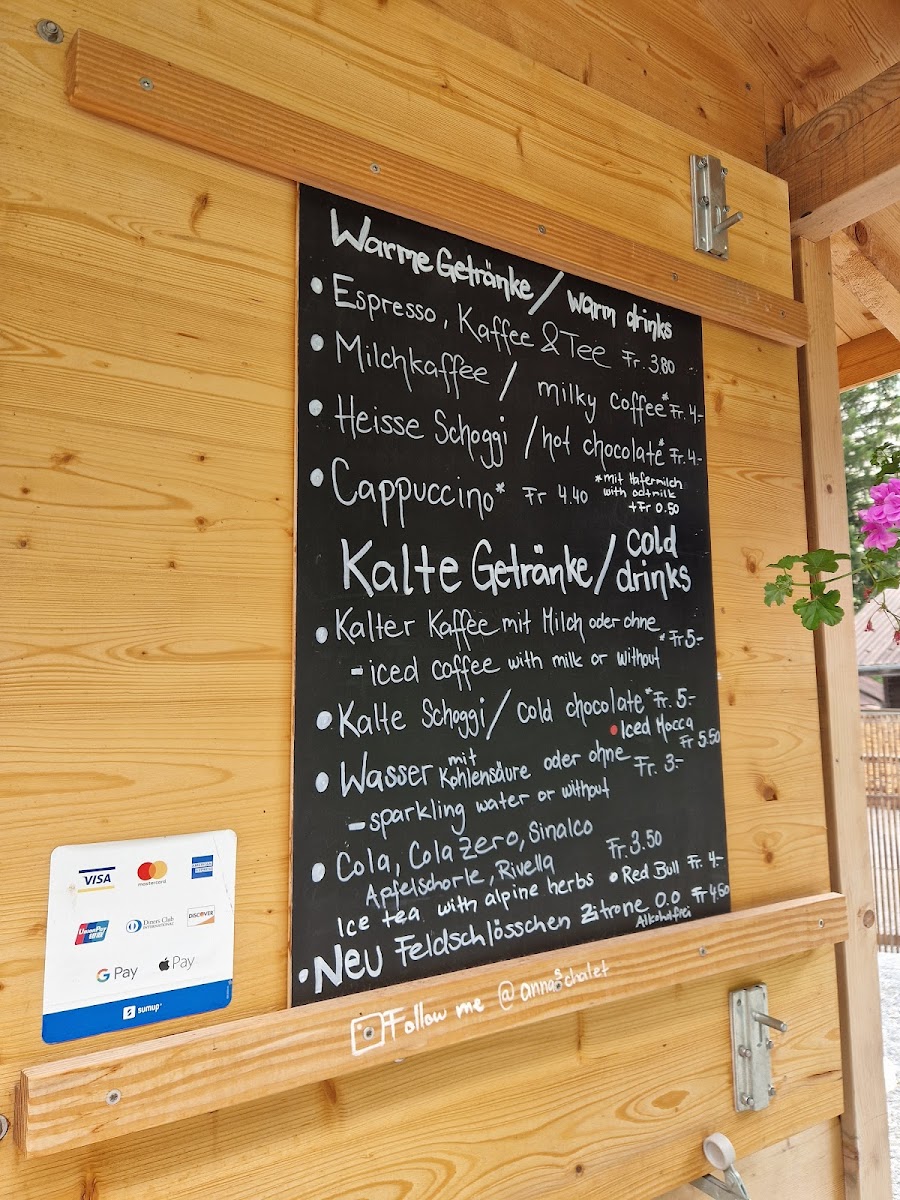 Warme Getränke / warm drinks
• Espresso, Kaffee & Tee Fr. 3.80
• Milchkaffee / milky coffee* Fr. 4.-
• Heisse Schoggi / hot chocolate* Fr. 4.-
• Cappuccino* Fr 4.40
*mit Hafermilch
with oatmilk
+Fr 0.50
Kalte Getränke / cold drinks
• Kalter Kaffee mit Milch oder ohne
- iced coffee with milk or without *Fr 5.-
• Kalte Schoggi / cold chocolate* Fr. 5.-
• Iced Mocca Fr 5.50
• Wasser mit Kohlensäure oder ohne Fr. 3.-
- sparkling water or without
• Cola, Cola Zero, Sinalco
Apfelschorle, Rivella Fr. 3.50
Ice tea with alpine herbs • Red Bull Fr. 4.-
• Neu Feldschlösschen Zitrone 0.0 Fr 4.50
Alkoholfrei
Follow me @annaschalet
VISA
mastercard
AMERICAN EXPRESS
UnionPay
银联
Diners Club
INTERNATIONAL
DISCOVER
G Pay
Pay
sumup